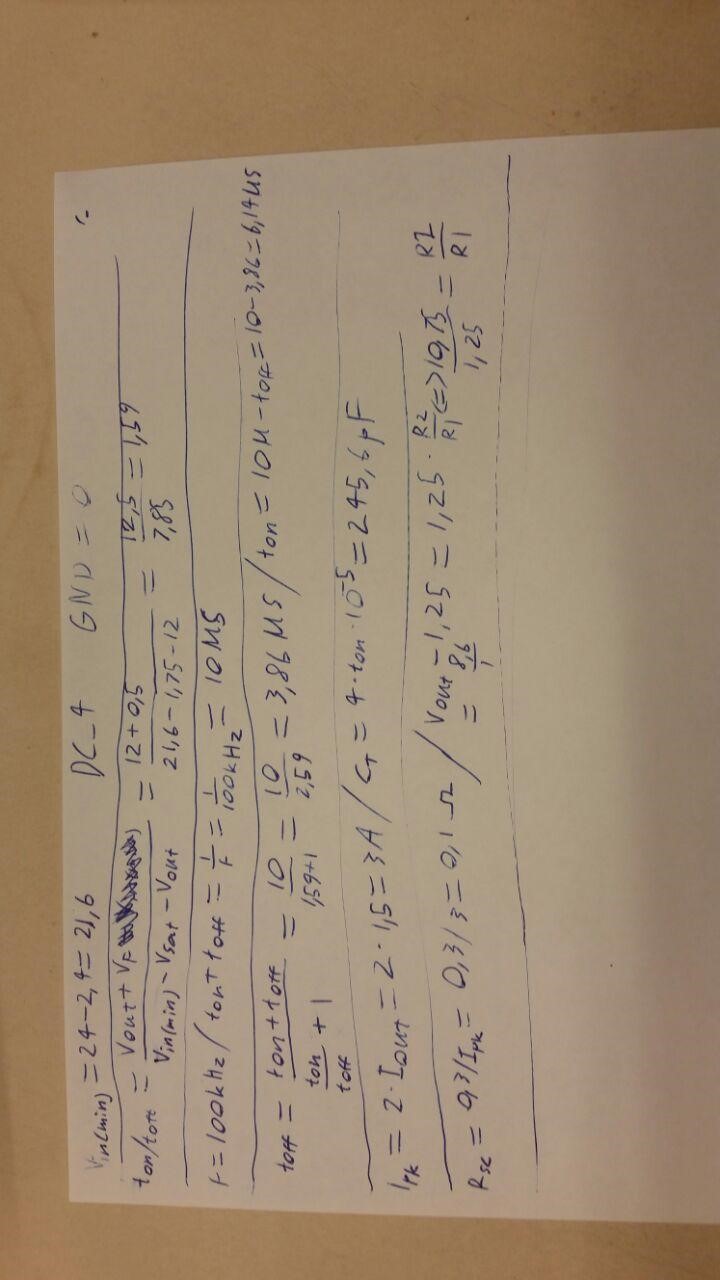 Vin(min) = 24-2,4 = 21,6 DC_4 GND = 0
ton/toff = Vout + VF / Vin(min) - Vsat - Vout = 12+0,5 / 21,6-1,75-12 = 12,5 / 7,85 = 1,59
F=100kHz / ton+toff = 1/F = 1/100kHz = 10 MS
toff = ton+toff / ton/toff + 1 = 10 / 1,59+1 = 10 / 2,59 = 3,86 MS / ton = 10M - toff = 10-3,86 = 6,14 MS
Ipk = 2·Iout = 2·1,5 = 3A / CT = 4·ton·10^-5 = 245,6 pF
Rsc = 0,3/Ipk = 0,3/3 = 0,1 Ω / Vout-1,25 = 1,25 · R2/R1 <=> 10,75 / 1,25 = R2/R1
= 8,6 / 1